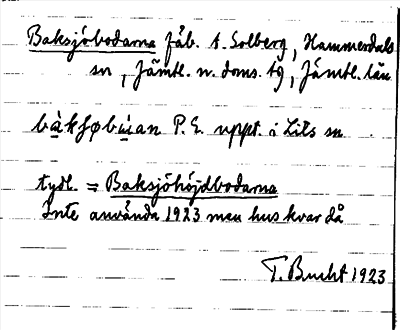 Baksjöbodarna fäb. t. Solberg, Hammerdals
sn, Jämtl. n. doms. tg, Jämtl. län
bàkʃøbùan P. E. uppt. i Lits sn
tydl. = Baksjöhöjdbodarna
Inte använda 1923 men hus kvar då
T. Bucht 1923